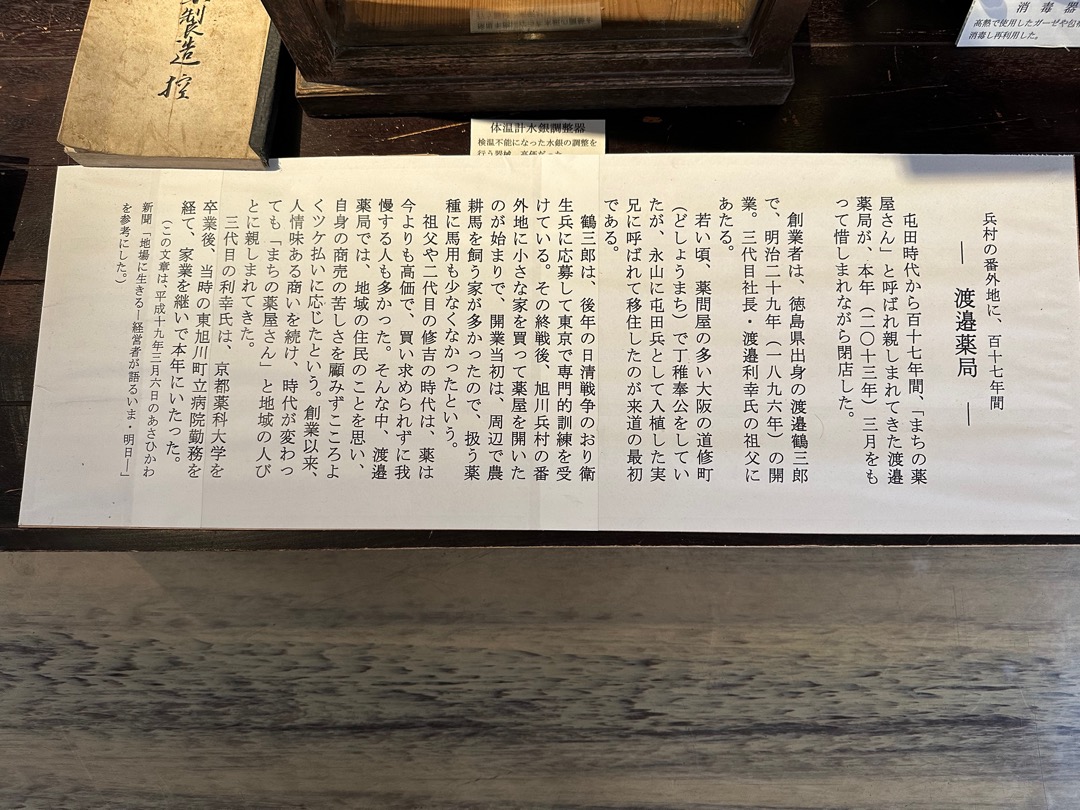 兵村の番外地に、百十七年間
― 渡邉薬局 ―
屯田時代から百十七年間、「まちの薬
屋さん」と呼ばれ親しまれてきた渡邉
薬局が、本年（二〇十三年）三月をも
って惜しまれながら閉店した。
創業者は、徳島県出身の渡邉鶴三郎
で、明治二十九年（一八九六年）の開
業。三代目社長・渡邉利幸氏の祖父に
あたる。
若い頃、薬問屋の多い大阪の道修町
（どしょうまち）で丁稚奉公をしてい
たが、永山に屯田兵として入植した実
兄に呼ばれて移住したのが来道の最初
である。
鶴三郎は、後年の日清戦争のおり衛
生兵に応募して東京で専門的訓練を受
けている。その終戦後、旭川兵村の番
外地に小さな家を買って薬屋を開いた
のが始まりで、開業当初は、周辺で農
耕馬を飼う家が多かったので、扱う薬
種に馬用も少なくなかったという。
祖父や二代目の修吉の時代は、薬は
今よりも高価で、買い求められずに我
慢する人も多かった。そんな中、渡邉
薬局では、地域の住民のことを思い、
自身の商売の苦しさを顧みずこころよ
くツケ払いに応じたという。創業以来、
人情味ある商いを続け、時代が変わっ
ても「まちの薬屋さん」と地域の人び
とに親しまれてきた。
三代目の利幸氏は、京都薬科大学を
卒業後、当時の東旭川町立病院勤務を
経て、家業を継いで本年にいたった。
（この文章は、平成十九年三月六日のあさひかわ
新聞「地場に生きる―経営者が語るいま・明日―」
を参考にした。）
製造控
体温計水銀調整器
検温不能になった水銀の調整を
行う器械。高価だった
消毒器
高熱で使用したガーゼや包
消毒し再利用した。